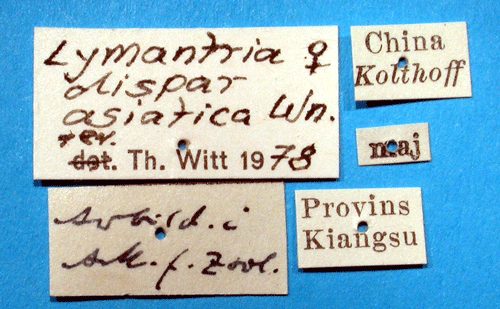 Lymantria ♀
dispar
asiatica Wn.
rev.
det. Th. Witt 1978
China
Kolthoff
maj
Avbild. i
Ark. f. Zool.
Provins
Kiangsu